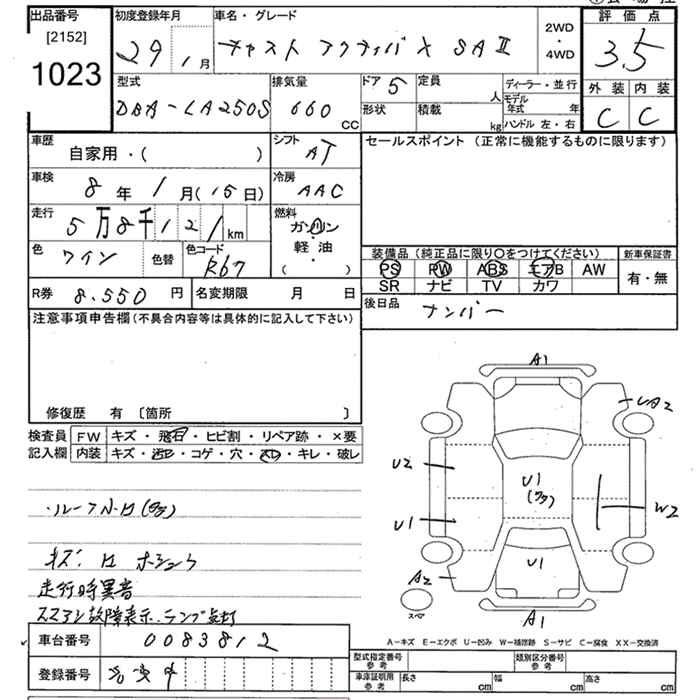 出品番号 初度登録年月 車名・グレード 2WD・4WD 評価点
[2152]
1023 29 1月 キャスト アクティバ X SAⅡ 3.5
外装 内装
C C
型式 排気量 ドア 5 定員 人 ディーラー・並行
DBA-LA250S 660 CC 形状 積載 kg モデル年式 年
ハンドル 左・右
車歴 自家用・( ) シフト AT
セールスポイント (正常に機能するものに限ります)
車検 8年 1月(15日) 冷房 AAC
走行 5万8千121km 燃料 ガソリン・軽油 ( )
色 ワイン 色替 色コード R67
装備品 (純正品に限り○をつけてください) 新車保証書
PS PW ABS エアB AW 有・無
SR ナビ TV カワ
R券 8.550円 名変期限 月 日
後日品 ナンバー
注意事項申告欄(不具合内容等は具体的に記入して下さい)
修復歴 有 〔箇所 〕
検査員 FW キズ・飛石・ヒビ割・リペア跡・×要
記入欄 内装 キズ・コゲ・穴・キレ・破レ
A1
UA2
U2
U1
(夕夕)
W2
U1
U1
A2
スペア
A1
・ルーフ
キズ
走行時異音
スマアシ故障表示、ランプ点灯
A-キズ E-エクボ U-凹み W-補修跡 S-サビ C-腐食 XX-交換済
車台番号 0083812
登録番号
型式指定番号 参考 類別区分番号 参考
車庫証明用 参考 長さ cm 幅 cm 高さ cm